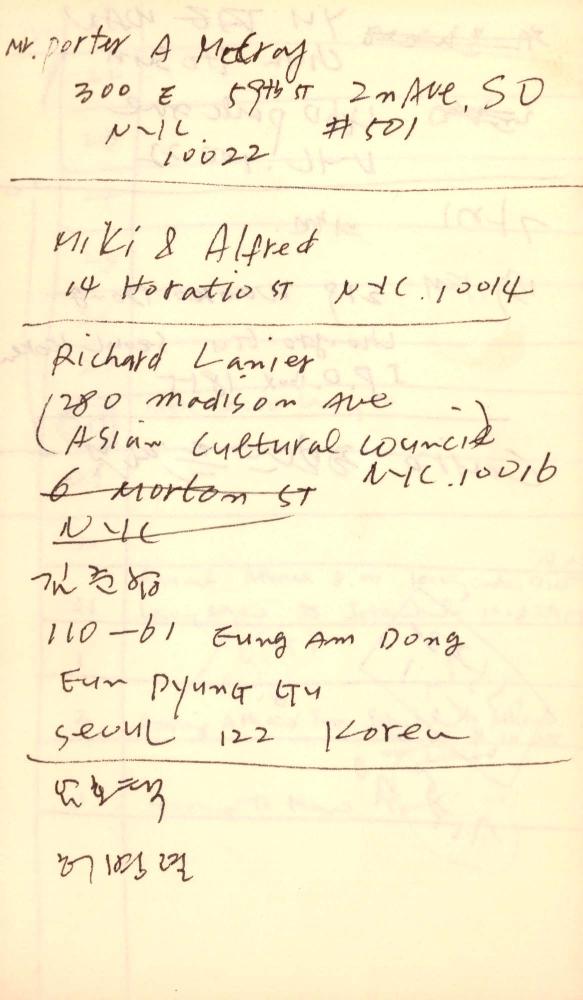 Mr. porter A McCray
300 E 59th ST 2nd AVE. SO
NYC. #501
10022
Miki & Alfred
14 Horatio ST NYC. 10014
Richard Lanier
(280 madison Ave
Asian Cultural Council)
6 Morton ST NYC. 10016
NYC
110-61 Eung Am Dong
Eun Pyung Gu
seoul 122 Korea